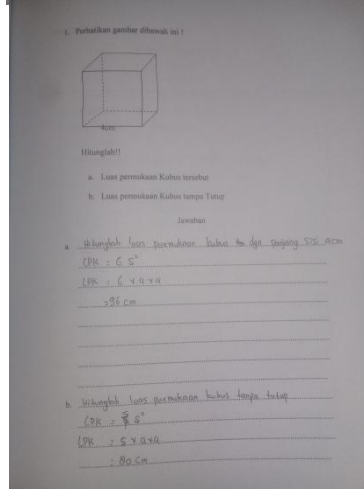 1. Perhatikan gambar dibawah ini !
4cm
Hitunglah!!
a. Luas permukaan Kubus tersebut
b. Luas permukaan Kubus tampa Tutup
Jawaban
a. Hitunglah luas permukaan kubus dgn panjang sisi 4cm
LPK : 6 S²
LPK : 6 x 4 x 4
: 96 cm
b. Hitunglah luas permukaan kubus tanpa tutup
LPK : 5 S²
LPK : 5 x 4 x 4
: 80 cm